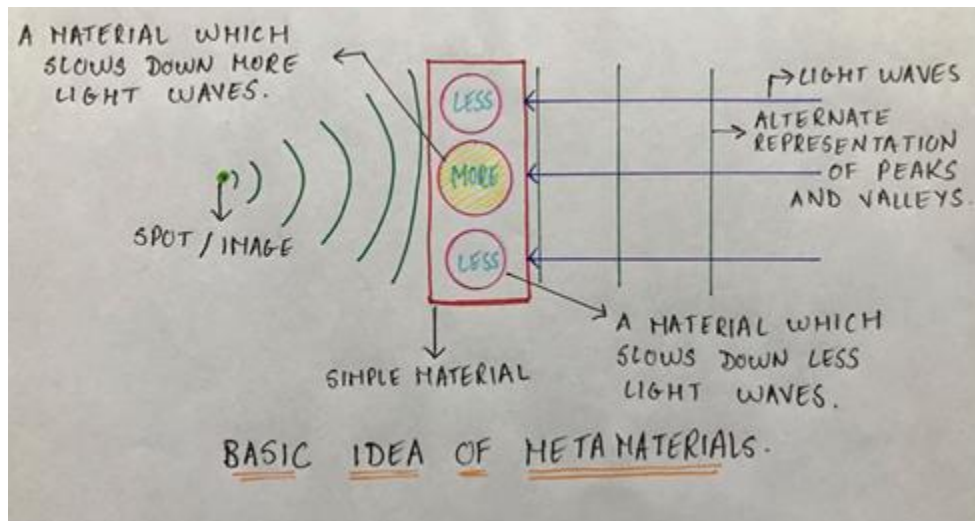 A MATERIAL WHICH
SLOWS DOWN MORE
LIGHT WAVES.
LESS
MORE
LESS
LIGHT WAVES
ALTERNATE
REPRESENTATION
OF PEAKS
AND VALLEYS.
SPOT / IMAGE
SIMPLE MATERIAL
A MATERIAL WHICH
SLOWS DOWN LESS
LIGHT WAVES.
BASIC IDEA OF METAMATERIALS.